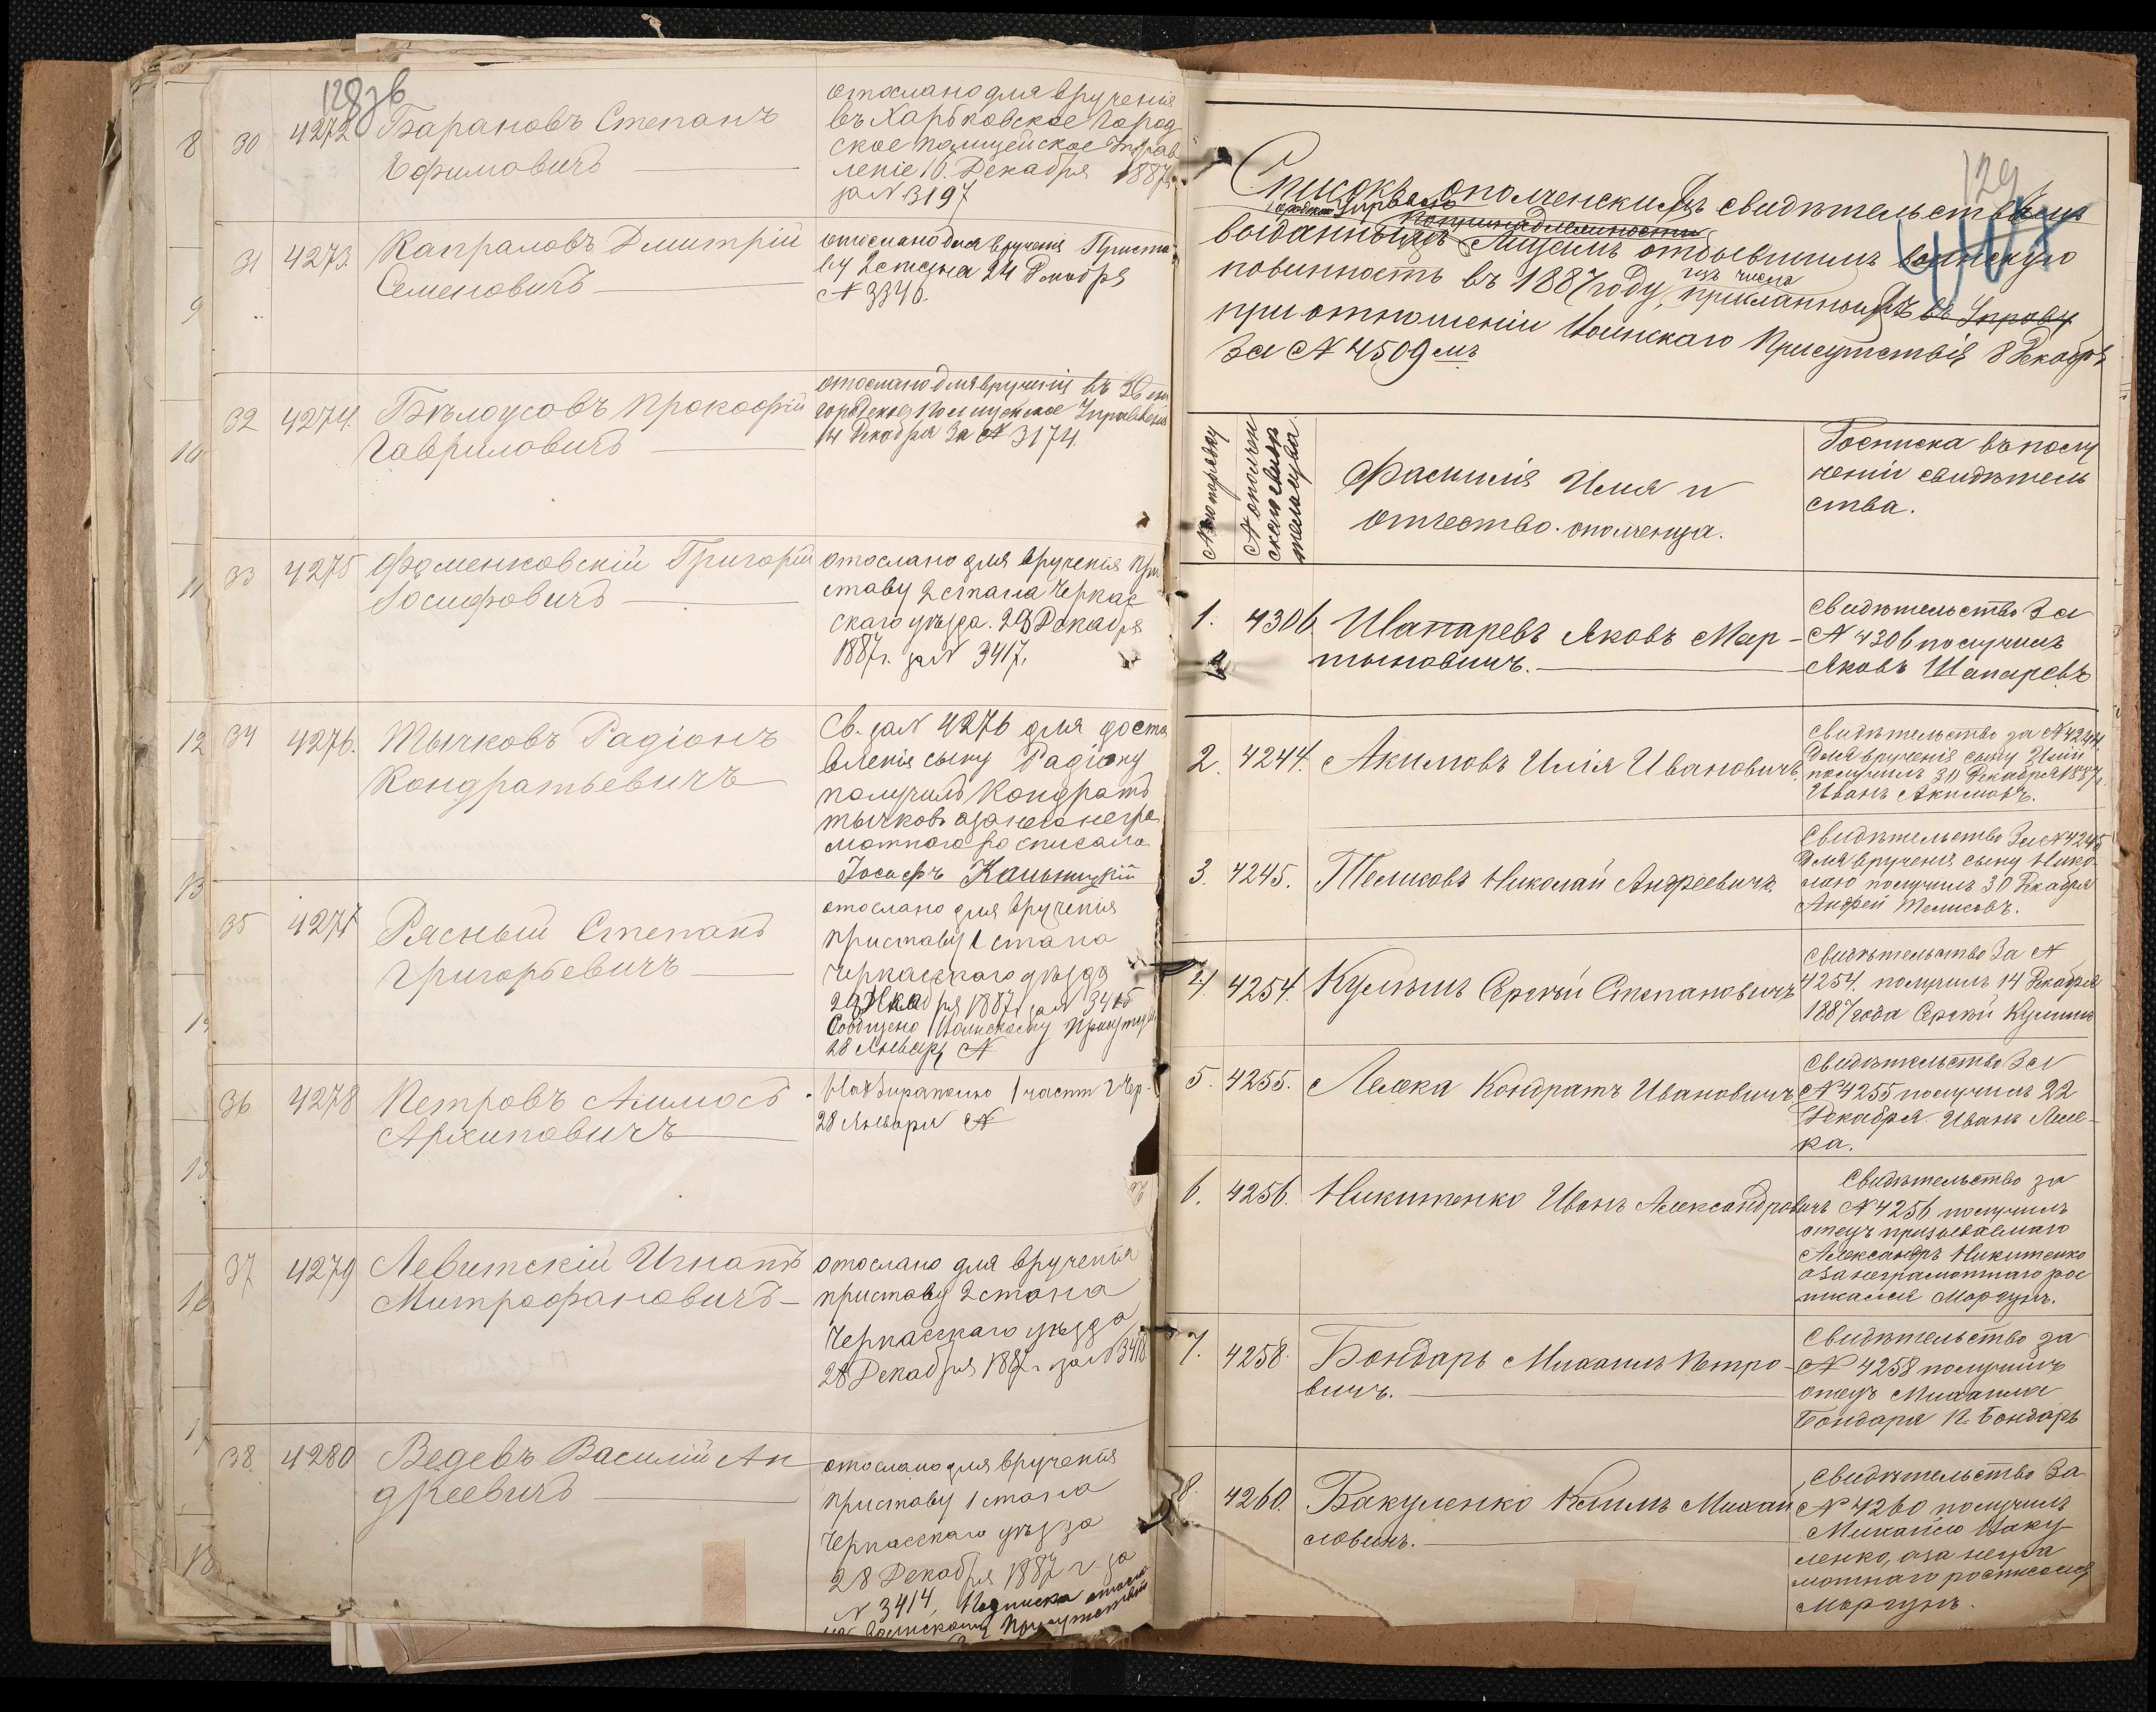 128 зв
8 30 4272 Барановъ Степанъ
Ефимовичъ
отослано для врученія
въ Харьковское Город
ское полицейское Управ
леніе 16. Декабря 1887г.
за N 3197
9
31 4273. Капраловъ Дмитрій
Семеновичъ
отослано для врученія Приста
ву 2 стана 24 Декабря
N 3346.
10
32 4274. Бѣлоусовъ Прокофій
Гавриловичъ
отослано для врученія въ
городское Полицейское Управленіе
14 Декабря За N 3174
11 33 4275 Фоменковскій Григорій
Іосифовичъ
отослано для врученія при
ставу 2 стана Черкас
скаго уѣзда. 28 Декабря
1887г. за N 3417.
12 34 4276. Тычковъ Радіонъ
Кондратьевичъ
Св. за N 4276 для доста
вленія сыну Радіону
получилъ Кондратъ
Тычковъ а за него негра
мотнаго росписался
Іосифъ
13
35 4277 Рясный Степанъ
Григорьевичъ
отослано для врученія
приставу 1 стана
Черкасскаго уѣзда
28 Декабря 1887г за N 3415
Сообщено Воинскому Присутствію
28 Января N
36 4278 Петровъ Амносъ
Архиповичъ
1 части г Чер.
28 Января N
15
37 4279 Левитскій Игнатъ
Митрофановичъ
отослано для врученія
приставу 2 стана
Черкасскаго уѣзда
28 Декабря 1887г. за N 3418
16
38 4280 Ведевъ Василій Ан
дреевичъ
отослано для врученія
приставу 1 стана
Черкасскаго уѣзда
28 Декабря 1887 г. за
N 3414, Подписка отосла
на Воинскому Присутствію
18
129
Списокъ ополченскимъ свидѣтельствамъ
Городской Управою
выданнымъ лицамъ отбывшимъ воинскую
повинность въ 1887 году, изъ числа присланныхъ въ Управу
при отношеніи Воинскаго Присутствія 8 Декабря
За N 4509мъ
N по порядку
N ополчен
скаго свидѣ
тельства
Фамилія Имя и
отчество ополченца.
Росписка въ полу
ченіи свидѣтель
ства.
1. 4306. Шапаревъ Яковъ Мар-
тыновичъ.
Свидѣтельство За
N 4306 получилъ
Яковъ Шапаревъ
2. 4244. Акимовъ Илія Ивановичъ
Свидѣтельство за N 4244
для врученія сыну Иліи
получилъ 30 Декабря 1887г.
Иванъ Акимовъ.
3. 4245. Теликовъ Николай Андреевичъ
Свидѣтельство За N 4245
для врученія сыну Нико-
лаю получилъ 30 Декабря
Андрей Теликовъ.
4. 4254. Кулѣшъ Сергѣй Степановичъ
Свидѣтельство За N
4254. получилъ 14 Декабря
1887 года Сергѣй Кулишъ
5. 4255. Лелека Кондратъ Ивановичъ
Свидѣтельство За
N 4255 получилъ 22
Декабря Иванъ Леле-
ка.
6. 4256. Никитенко Иванъ Александровичъ
Свидѣтельство за
N 4256 получилъ
отецъ призываемаго
Александръ Никитенко
а за неграмотнаго рос
писался Моргунъ.
7. 4258. Бондарь Михаилъ Петро-
вичъ.
Свидѣтельство за
N 4258 получилъ
отецъ Михаила
Бондаря П. Бондарь
8. 4260. Вакуленко Климъ Михай
ловичъ.
Свидѣтельство За
N 4260 получилъ
Михайло Ваку
ленко, а за негра
мотнаго росписался
Моргунъ.